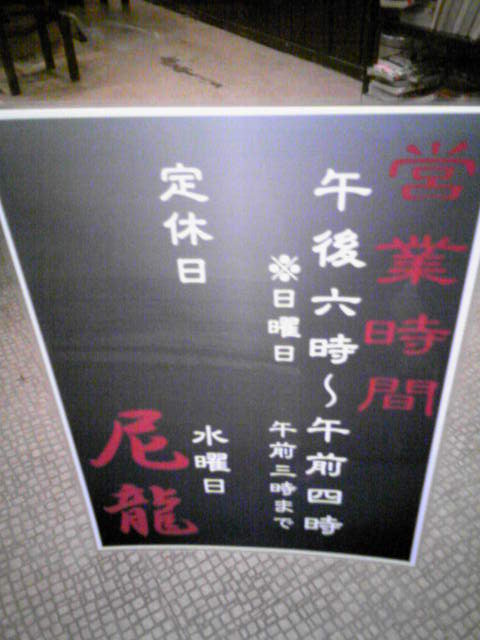 営業時間
午後六時～午前四時
※日曜日 午前三時まで
定休日
水曜日
尼龍